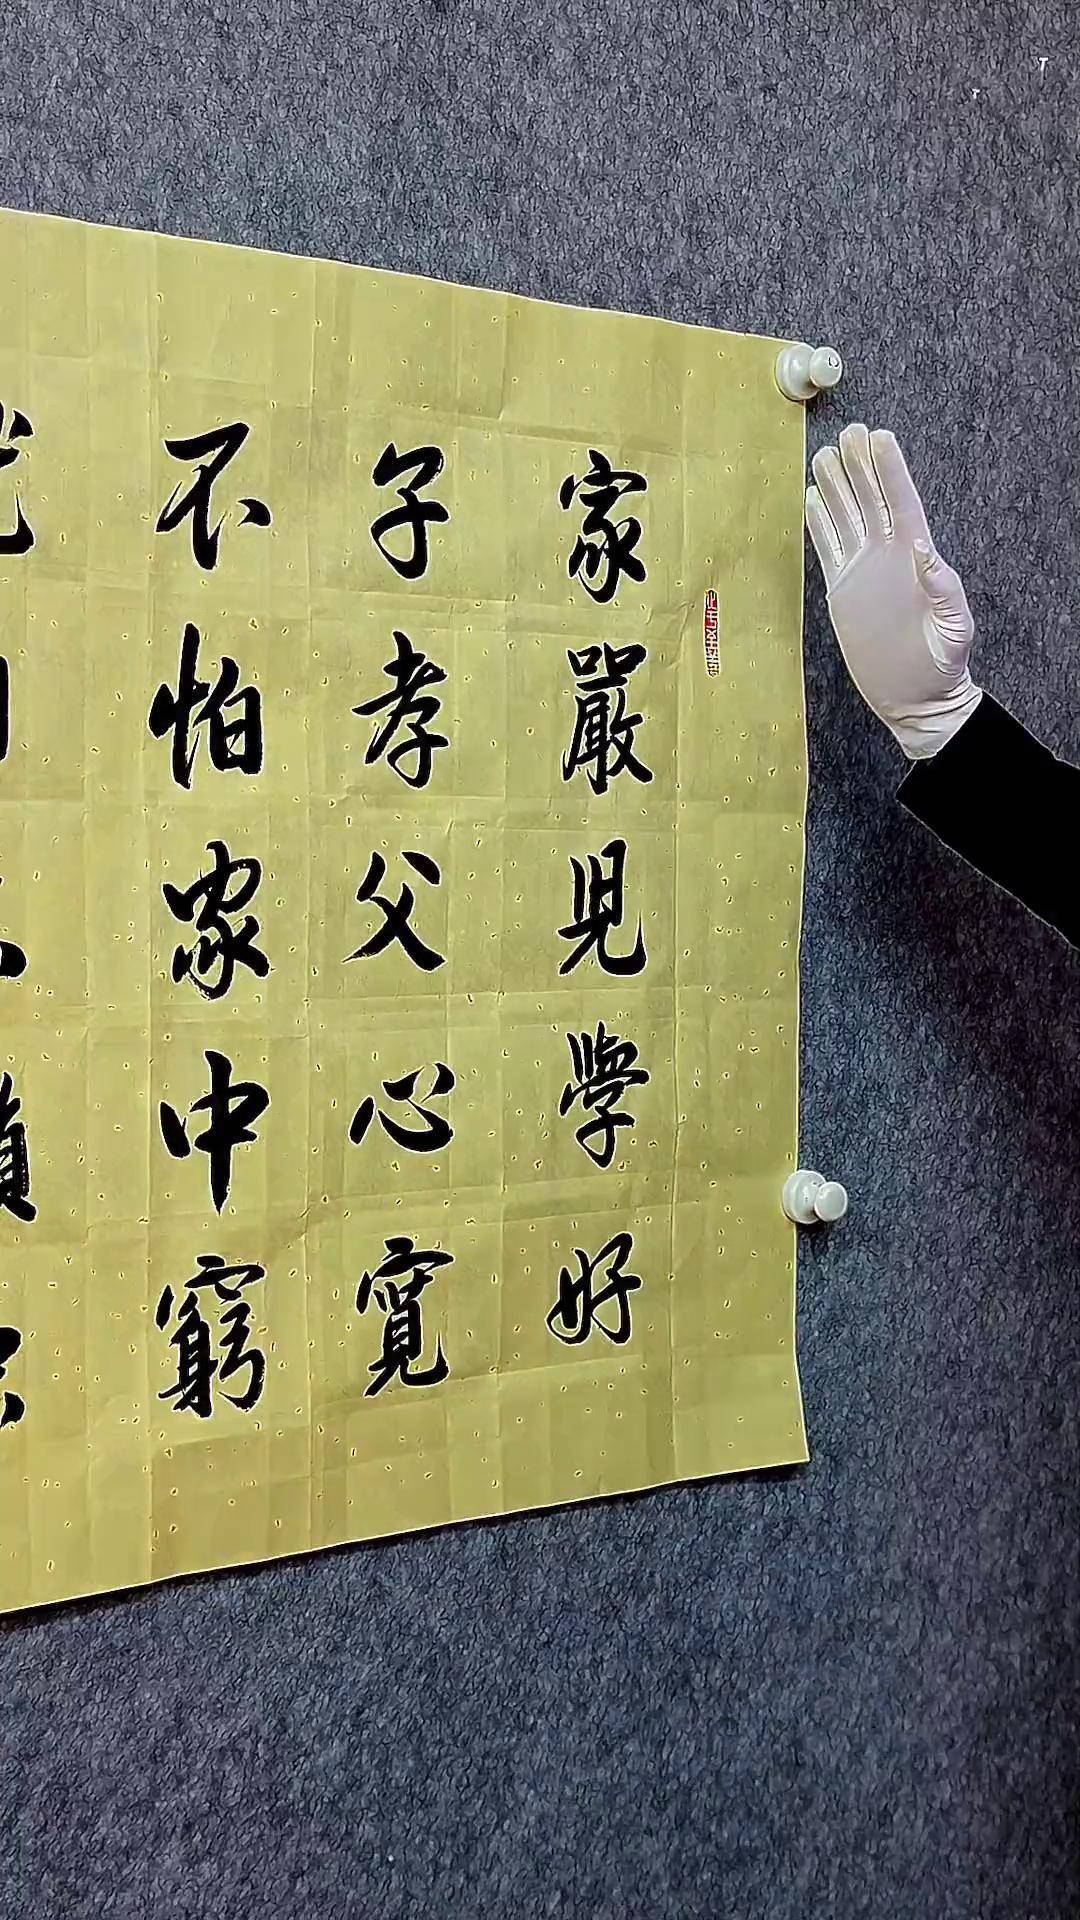 家嚴見學好
子孝父心寬
不怕家中窮